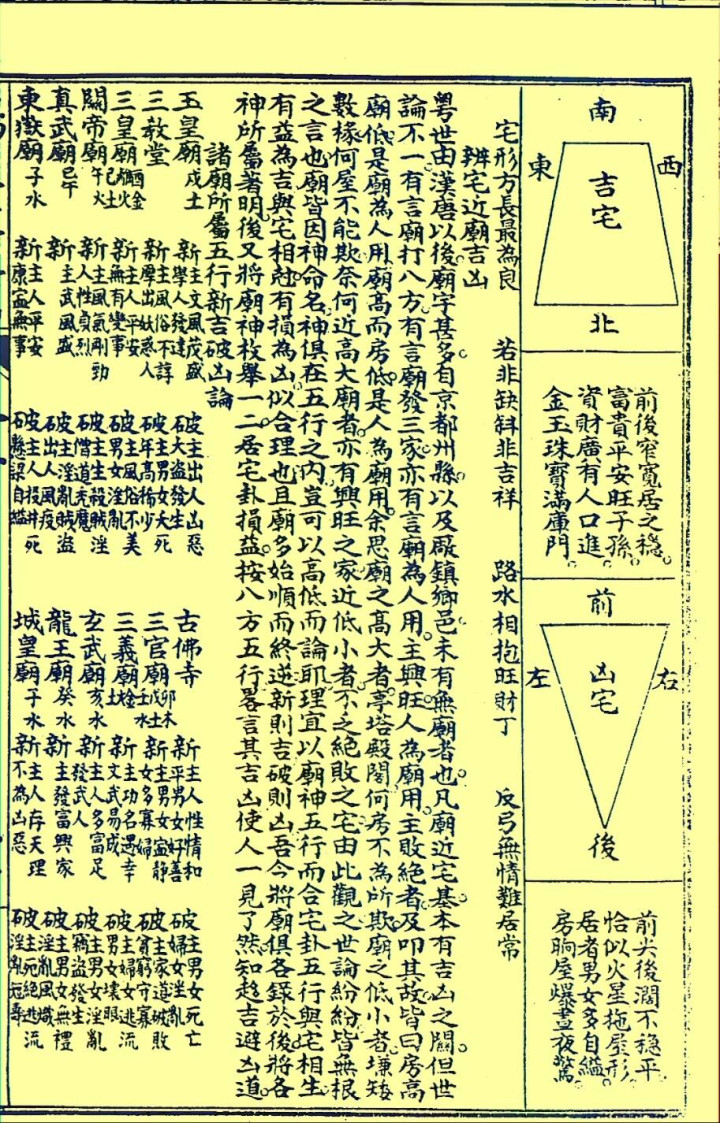 南
西
東
吉宅
北
前後窄寬居之穩
富貴平安旺子孫
資財廣有人口進
金玉珠寶滿庫門
前
右
左
凶宅
後
前尖後濶不穩平
恰似火星拖屋形
居者男女多自縊
房晌屋爆晝夜驚
宅形方長最為良 若非缺斜非吉祥 路水相抱旺財丁 反弓無情難居常
辨宅近廟吉凶
粵世由漢唐以後廟宇甚多自京都州縣以及厰鎮鄉邑未有無廟者也凡廟近宅基本有吉凶之關但世
論不一有言廟打八方有言廟發三家亦有言廟為人用主興旺人為廟用主敗絕者及叩其故皆曰房高
廟低是廟為人用廟高而房低是人為廟用余思廟之高大者亭塔殿閣何房不為所欺廟之低小者矮
數椽何屋不能欺奈何近高大廟者亦有興旺之家近低小者不乏絕敗之宅由此觀之世論紛紛皆無根
之言也廟皆因神命名神俱在五行之內豈可以高低而論耶理宜以廟神五行而合宅卦五行與宅相生
有益為吉與宅相尅有損為凶似合理也且廟多始順而終逆新則吉破則凶吾今將廟俱各錄於後將各
神所屬著明後又將廟神枚舉一二居宅卦損益按八方五行畧言其吉凶使人一見了然知趍吉避凶道
諸廟所屬五行新吉破凶論
玉皇廟戌土 新主文風茂盛學人發達 破主出人凶惡大盜發生 古佛寺 新主人性情和平男女好善 破主男女死亡婦女淫亂
三教堂 新主風俗不諄屢出妖惑人 破主男女夭死年高稀少 三官廟 新主男女寂靜女多寡婦 破主家道破敗貧窮守寡
三皇廟 新主人平安無有變事 破主風俗不美男女淫亂 三義廟 新主功名遇幸文武易成 破主婦女逃流男女壞眼
關帝廟午火 新主風氣剛勁人性貞烈 破主生殺賊淫僧道禿魔 玄武廟亥水 新主人多富足發武人 破主男女淫亂竊盜發生
真武廟巳午 新主武風盛 破主淫亂賊盜出人風疫 龍王廟癸水 新主發富興家 破主男女無禮淫亂風熾
東嶽廟子水 新主人平安康寍無事 破主人投井死懸梁自縊 城皇廟子水 新主人存天理不為凶惡 破主死絕逃流淫亂短壽